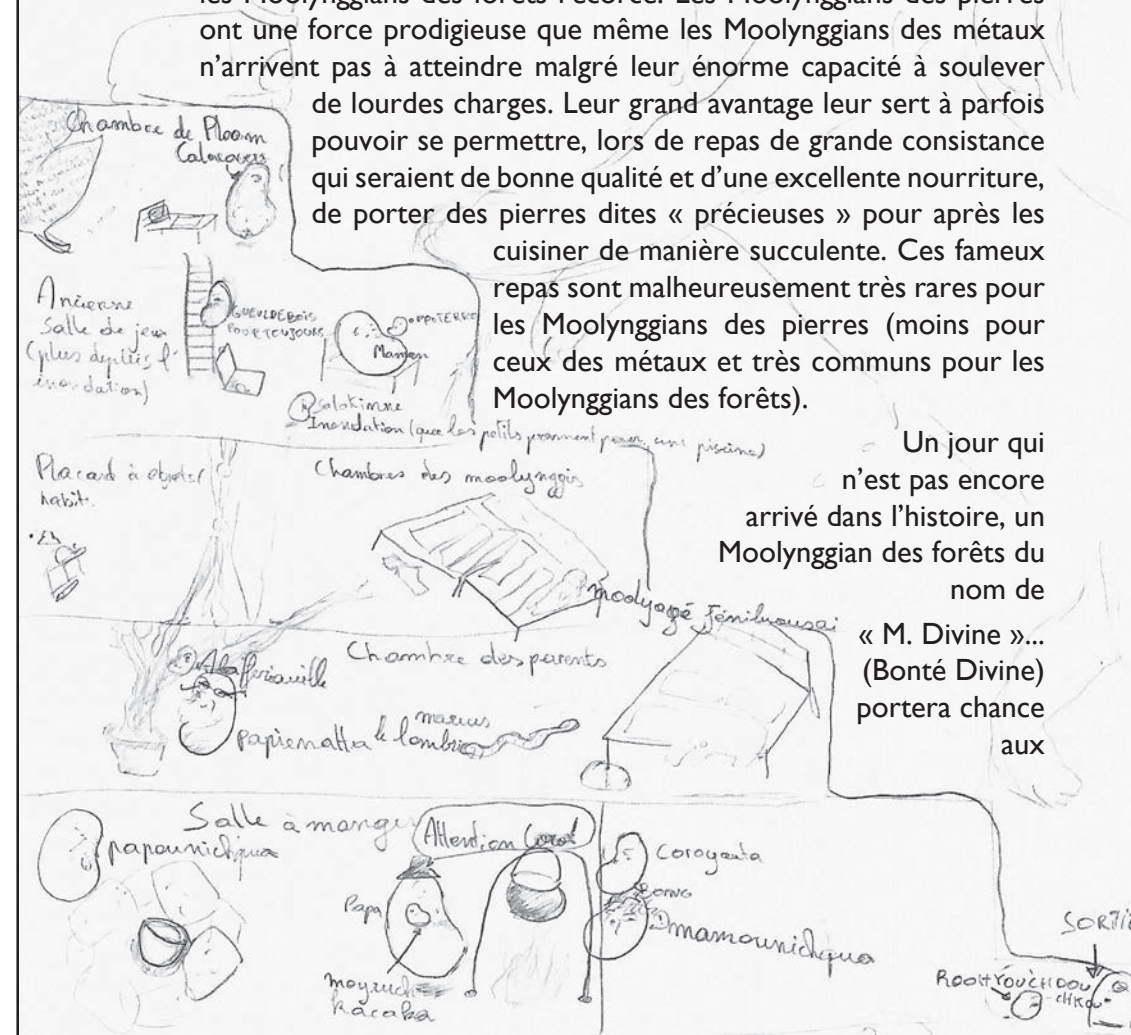 les Moolynggians des forêts l'écorce. Les Moolynggians des pierres
ont une force prodigieuse que même les Moolynggians des métaux
n'arrivent pas à atteindre malgré leur énorme capacité à soulever
de lourdes charges. Leur grand avantage leur sert à parfois
pouvoir se permettre, lors de repas de grande consistance
qui seraient de bonne qualité et d'une excellente nourriture,
de porter des pierres dites « précieuses » pour après les
cuisiner de manière succulente. Ces fameux
repas sont malheureusement très rares pour
les Moolynggians des pierres (moins pour
ceux des métaux et très communs pour les
Moolynggians des forêts).
Un jour qui
n'est pas encore
arrivé dans l'histoire, un
Moolynggian des forêts du
nom de
« M. Divine »...
(Bonté Divine)
portera chance
aux
Chambre de Ploom
Ancienne
Salle de jeux
(plus depuis l'
inondation)
GUEULDEBOIS
POURTOUJOURS
Maman
Inondation (que les petits prennent pour une piscine)
Placard à objets/
habit.
Chambres des moolynggis
Chambre des parents
papienatta
marius
le lombric
Salle à manger
papounichqua
Attention
Papa
moyruch
kacaka
Coroyanta
BOING
mamounichqua
SORTIE